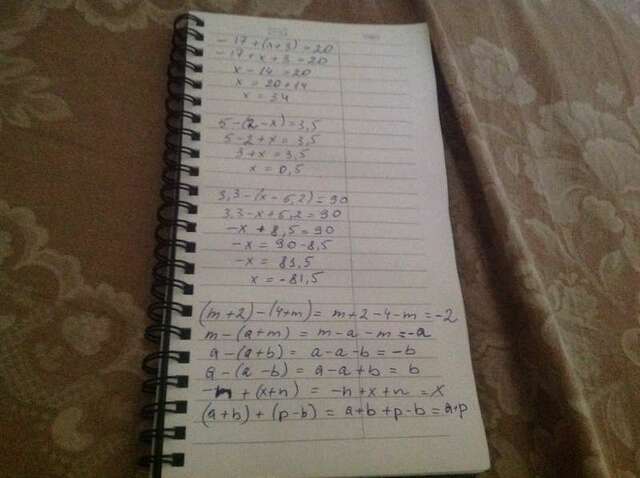 -17+(x+3)=20
-17+x+3=20
x-14=20
x=20+14
x=34
5-(2-x)=3,5
5-2+x=3,5
3+x=3,5
x=0,5
3,3-(x-5,2)=90
3,3-x+5,2=90
-x+8,5=90
-x=90-8,5
-x=81,5
x=-81,5
(m+2)-(4+m)=m+2-4-m=-2
m-(a+m)=m-a-m=-a
a-(a+b)=a-a-b=-b
a-(a-b)=a-a+b=b
-n+(x+n)=-n+x+n=x
(a+b)+(p-b)=a+b+p-b=a+p